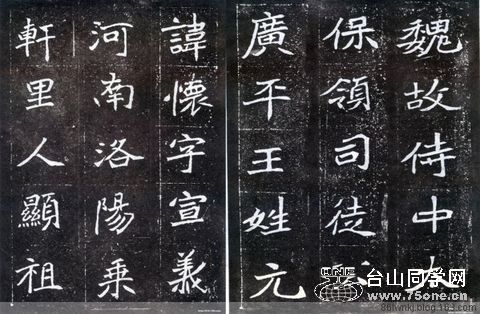 魏故侍中太
保領司徒
廣平王姓元
諱懷字宣義
河南洛陽乘
軒里人顯祖
台山同学网
www.75one.cn